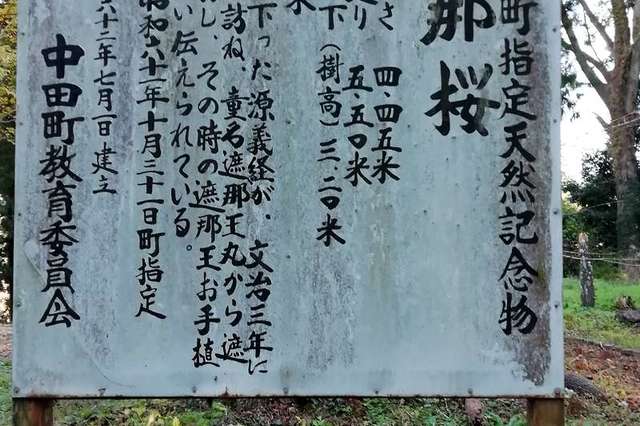 町指定天然記念物
那桜
さ 四・四五米
り 五・五〇米
下(樹高)三・二〇米
米
下った源義経が、文治三年に
訪ね、童名遮那王丸から遮
し、その時の遮那王お手植
い伝えられている。
昭和六十一年十月三十一日町指定
六十二年七月一日建立
中田町教育委員会